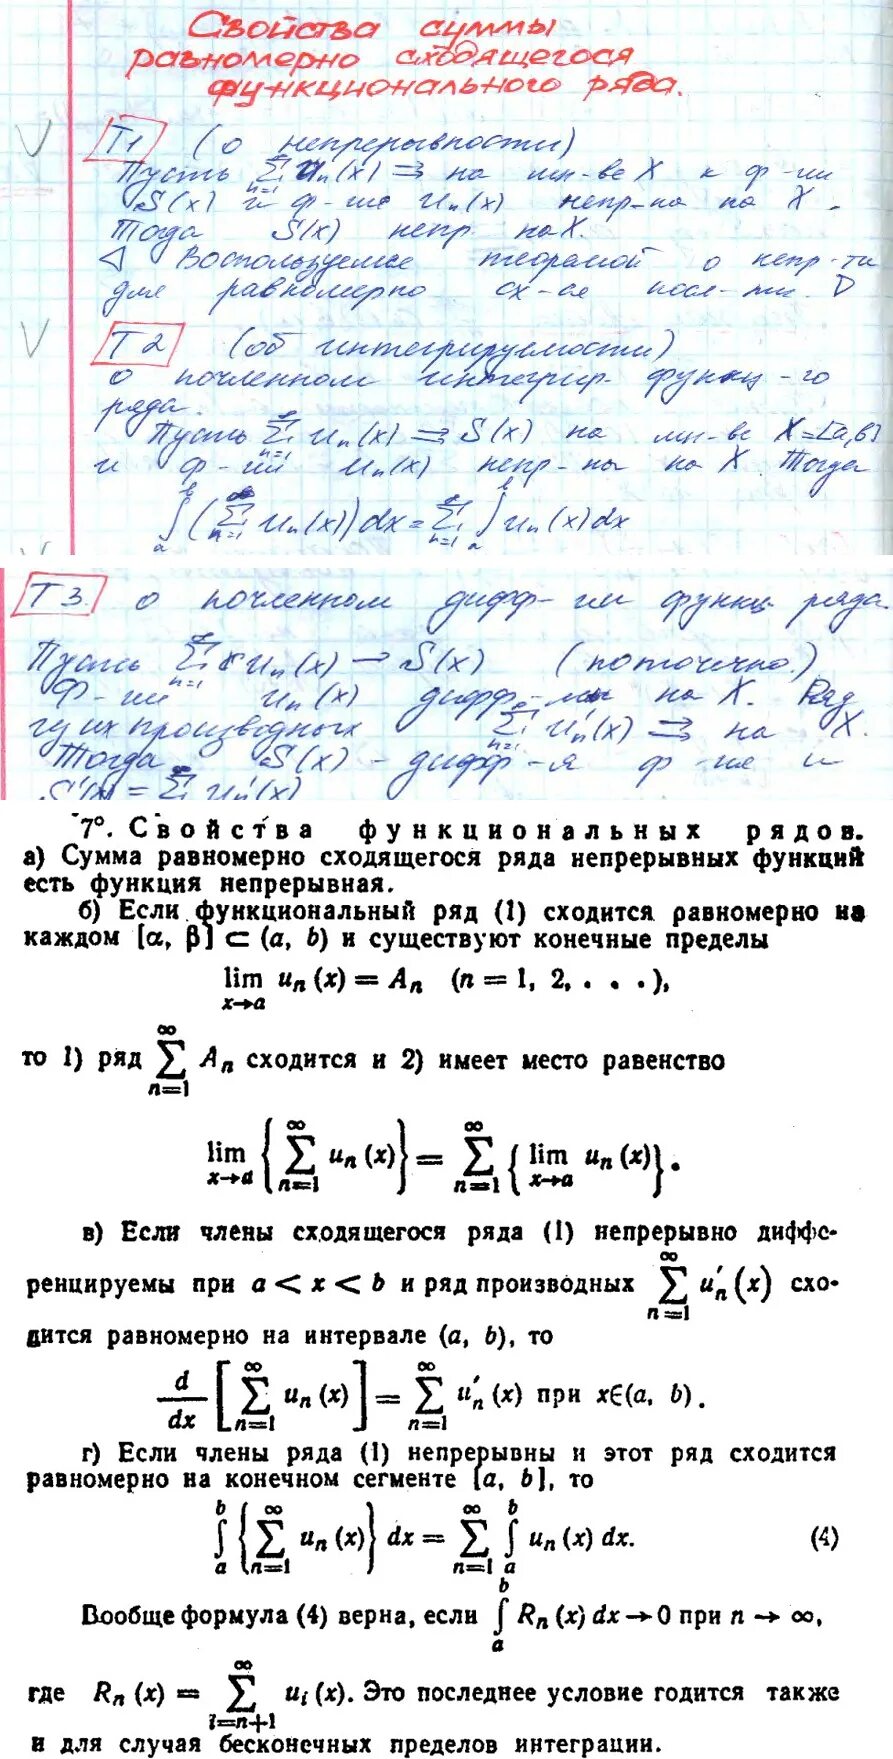 Свойства суммы
равномерно сходящегося
функционального ряда.
Т1 (о непрерывности)
Пусть ∑ n=1 ∞ uₙ(x) ⇉ на мн-ве X к ф-ии
S(x) и ф-ие uₙ(x) непр-на на X.
Тогда S(x) непр на X.
◁ Воспользуемся теоремой о непр-ти
для равномерно сх-ся посл-ти. ▷
Т2 (об интегрируемости)
о почленном интегрир. функц-го
ряда.
Пусть ∑ n=1 ∞ uₙ(x) ⇉ S(x) на мн-ве X=[a,b]
и ф-ии uₙ(x) непр-ны на X. Тогда
∫ₐᵇ (∑ n=1 ∞ uₙ(x)) dx = ∑ n=1 ∞ ∫ₐᵇ uₙ(x) dx
Т3. о почленном дифф-ии функц ряда
Пусть ∑ n=1 ∞ uₙ(x) → S(x) (поточечно.)
Ф-ии uₙ(x) дифф-мы на X. Ряд
из их производных ∑ n=1 ∞ u′ₙ(x) ⇉ на X.
Тогда S(x) - дифф-я ф-ия и
S′(x) = ∑ u′ₙ(x)
7°. Свойства функциональных рядов.
а) Сумма равномерно сходящегося ряда непрерывных функций
есть функция непрерывная.
б) Если функциональный ряд (1) сходится равномерно на
каждом [α, β] ⊂ (a, b) и существуют конечные пределы
lim x→a uₙ (x) = Aₙ (n = 1, 2, . . .),
то 1) ряд ∑ n=1 ∞ Aₙ сходится и 2) имеет место равенство
lim x→a { ∑ n=1 ∞ uₙ (x) } = ∑ n=1 ∞ { lim x→a uₙ (x) }.
в) Если члены сходящегося ряда (1) непрерывно диффе-
ренцируемы при a < x < b и ряд производных ∑ n=1 ∞ u′ₙ (x) схо-
дится равномерно на интервале (a, b), то
d/dx [ ∑ n=1 ∞ uₙ (x) ] = ∑ n=1 ∞ u′ₙ (x) при x∈(a, b).
г) Если члены ряда (1) непрерывны и этот ряд сходится
равномерно на конечном сегменте [a, b], то
∫ₐᵇ { ∑ n=1 ∞ uₙ (x) } dx = ∑ n=1 ∞ ∫ₐᵇ uₙ (x) dx. (4)
Вообще формула (4) верна, если ∫ₐᵇ Rₙ (x) dx → 0 при n → ∞,
где Rₙ (x) = ∑ i=n+1 ∞ uᵢ (x). Это последнее условие годится также
и для случая бесконечных пределов интеграции.